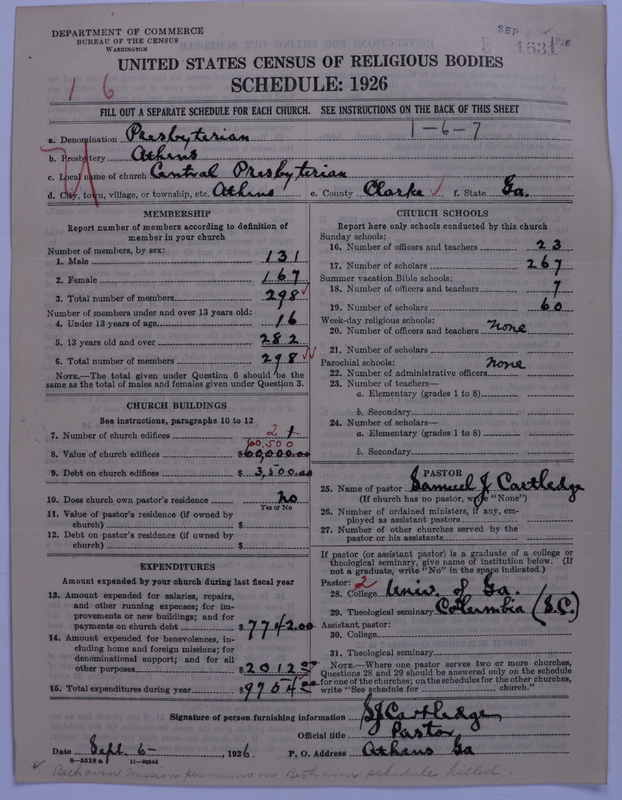 DEPARTMENT OF COMMERCE
BUREAU OF THE CENSUS
WASHINGTON
SEP
1631
UNITED STATES CENSUS OF RELIGIOUS BODIES
SCHEDULE: 1926
1 6
FILL OUT A SEPARATE SCHEDULE FOR EACH CHURCH. SEE INSTRUCTIONS ON THE BACK OF THIS SHEET
1-6-7
a. Denomination Presbyterian
b. Presbytery Athens
c. Local name of church Central Presbyterian
d. City, town, village, or township, etc. Athens e. County Clarke f. State Ga.
MEMBERSHIP
Report number of members according to definition of member in your church
Number of members, by sex:
1. Male 131
2. Female 167
3. Total number of members 298
Number of members under and over 13 years old:
4. Under 13 years of age 16
5. 13 years old and over 282
6. Total number of members 298
NOTE.—The total given under Question 6 should be the
same as the total of males and females given under Question 3.
CHURCH BUILDINGS
See instructions, paragraphs 10 to 12
7. Number of church edifices 2 1
60,500
8. Value of church edifices $60,000.00
9. Debt on church edifices $3,500.00
10. Does church own pastor's residence No
Yes or No
11. Value of pastor's residence (if owned by
church) $
12. Debt on pastor's residence (if owned by
church) $
EXPENDITURES
Amount expended by your church during last fiscal year
13. Amount expended for salaries, repairs,
and other running expenses; for im-
provements or new buildings; and for
payments on church debt $7742.00
14. Amount expended for benevolences, in-
cluding home and foreign missions; for
denominational support; and for all
other purposes $2012
15. Total expenditures during year $9754
CHURCH SCHOOLS
Report here only schools conducted by this church
Sunday schools:
16. Number of officers and teachers 23
17. Number of scholars 267
Summer vacation Bible schools:
18. Number of officers and teachers 7
19. Number of scholars 60
Week-day religious schools:
20. Number of officers and teachers none
21. Number of scholars
Parochial schools: none
22. Number of administrative officers
23. Number of teachers—
a. Elementary (grades 1 to 8)
b. Secondary
24. Number of scholars—
a. Elementary (grades 1 to 8)
b. Secondary
PASTOR
25. Name of pastor Samuel J Cartledge
(If church has no pastor, write "None")
26. Number of ordained ministers, if any, em-
ployed as assistant pastors
27. Number of other churches served by the
pastor or his assistants
If pastor (or assistant pastor) is a graduate of a college or
theological seminary, give name of institution below. (If
not a graduate, write "No" in the space indicated.)
Pastor: 2
28. College Univ. of Ga.
29. Theological seminary Columbia (S.C.)
Assistant pastor:
30. College
31. Theological seminary
NOTE.—Where one pastor serves two or more churches,
Questions 28 and 29 should be answered only on the schedule
for one of the churches; on the schedules for the other churches,
write "See schedule for church."
Signature of person furnishing information SJCartledge
Official title Pastor
Date Sept. 6-, 1926 P. O. Address Athens Ga
8-5518a 11-9064d
Bethaven Mission per memo on Bethaven schedule killed.